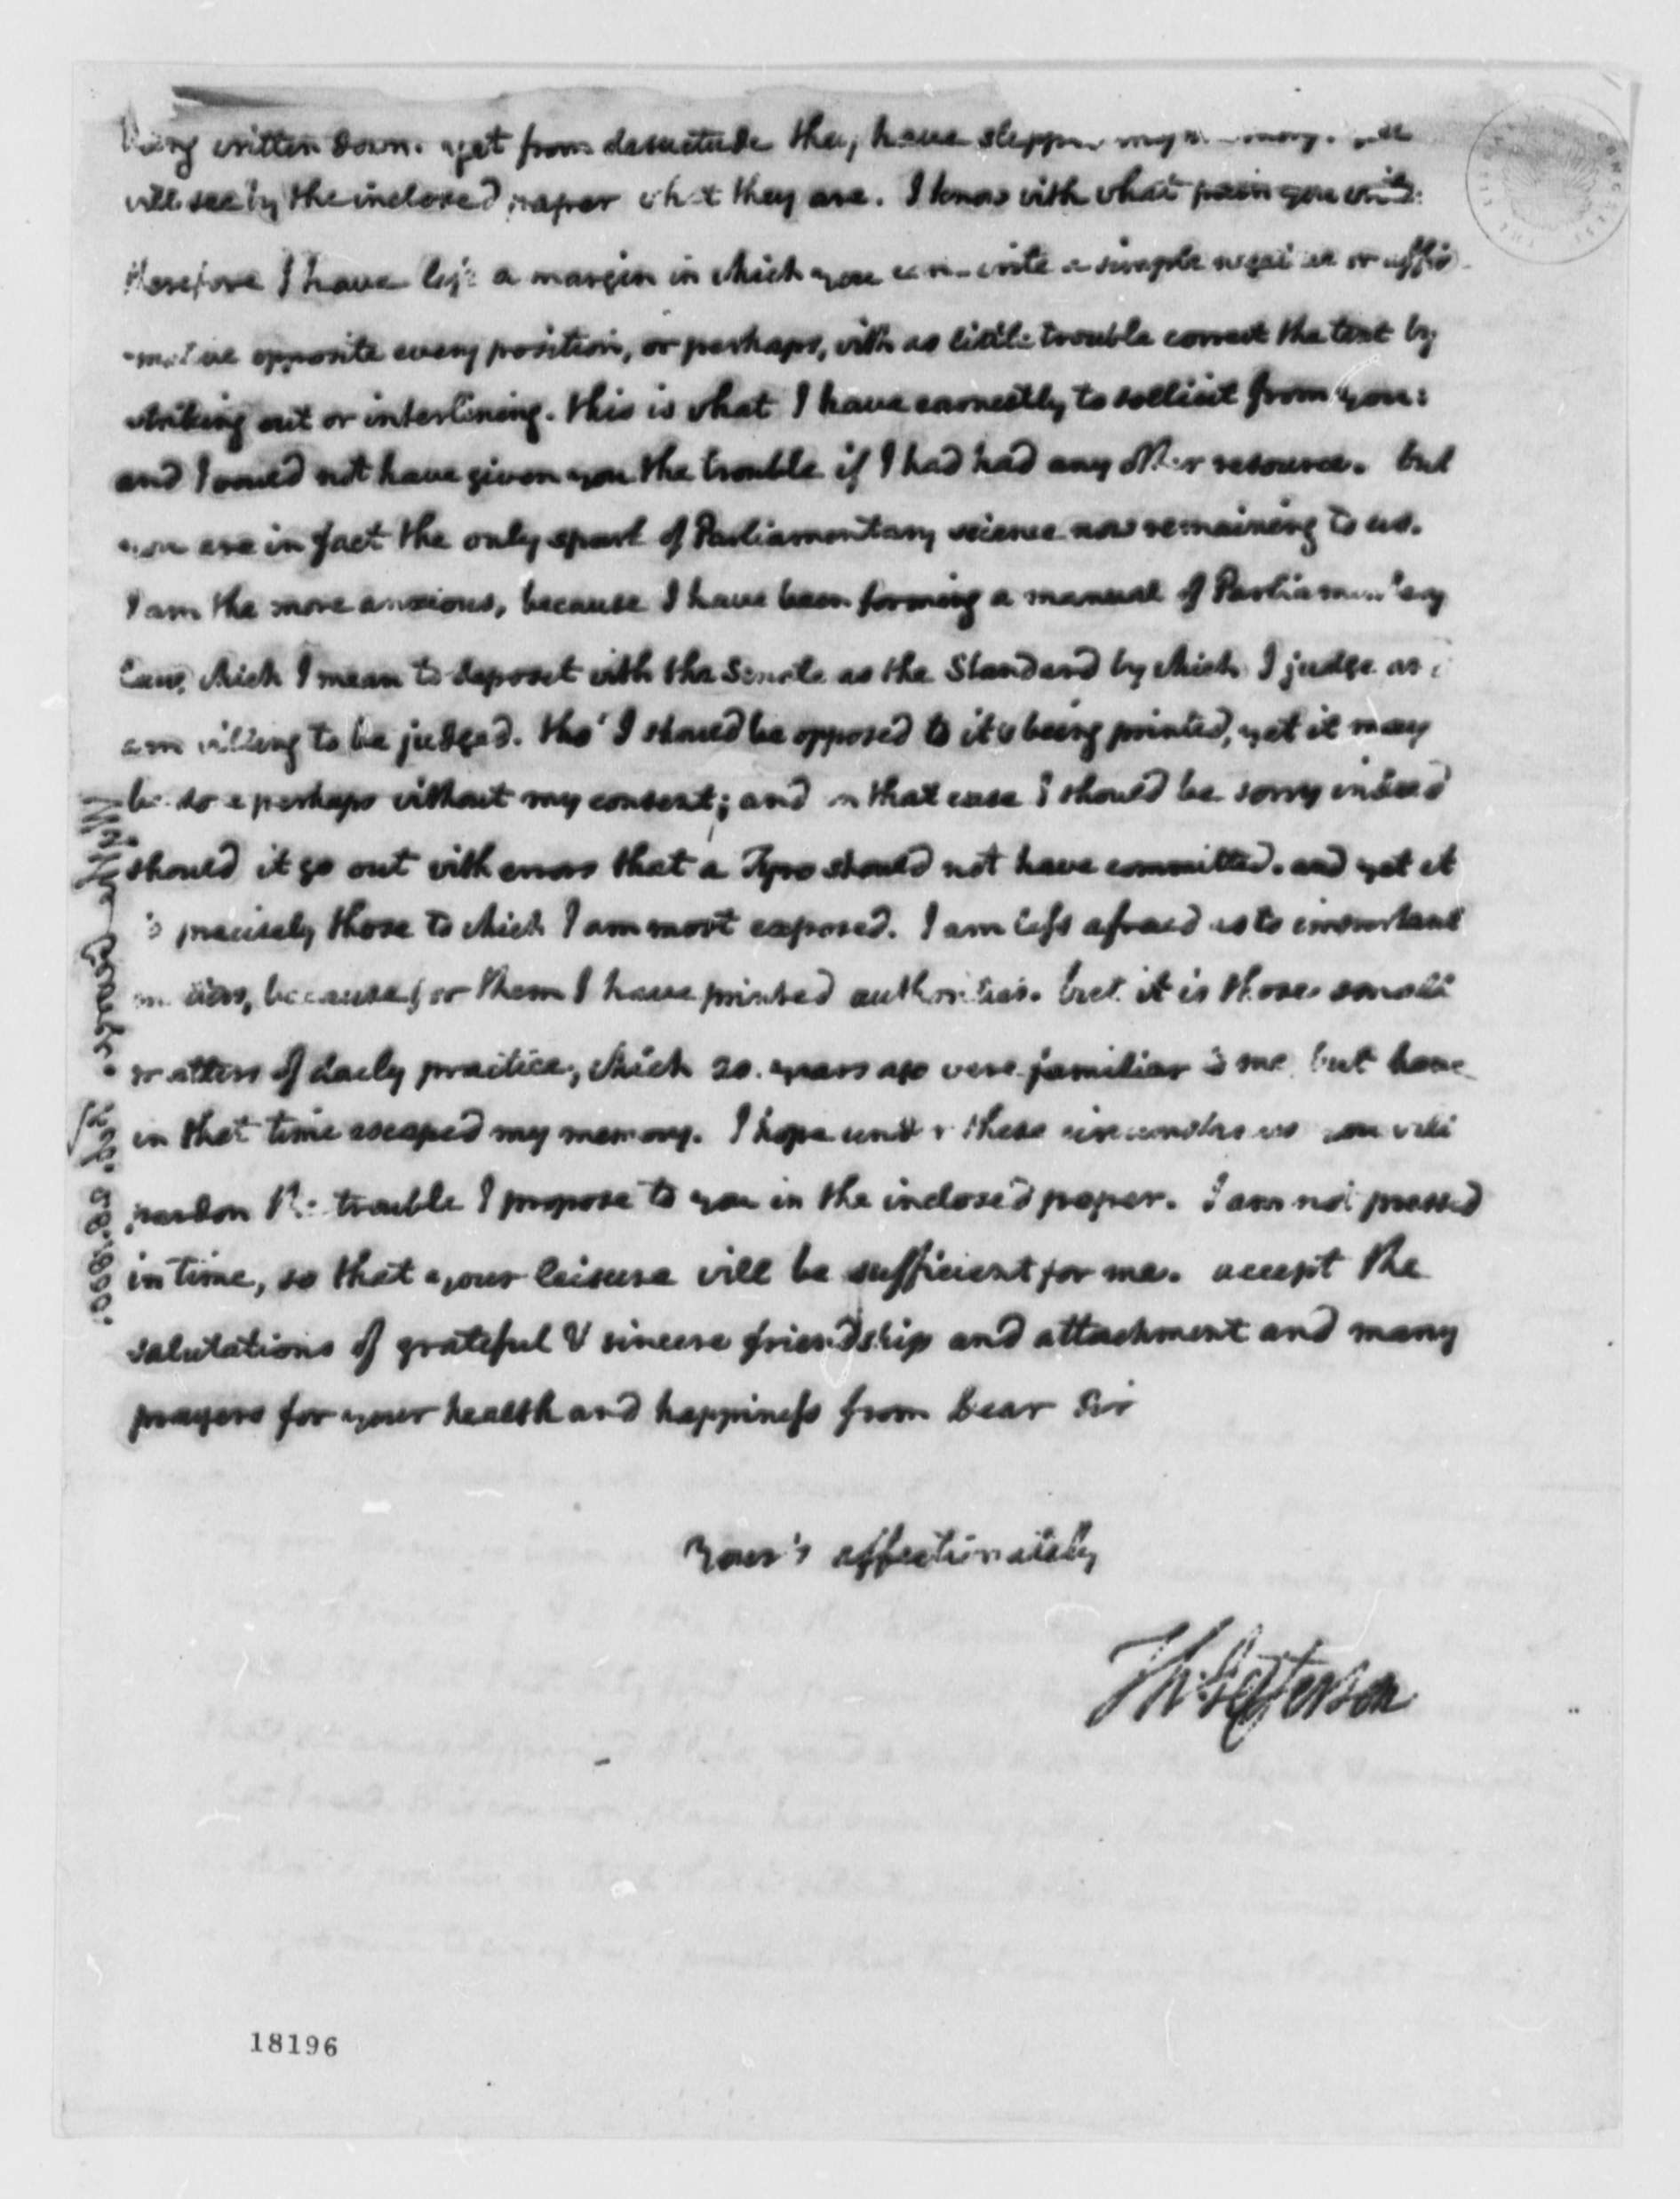 being written down. yet from desuetude they have slepped my memory. you
will see by the inclosed paper what they are. I know with what pain you write:
therefore I have left a margin in which you can write a simple negative or affir-
-mative opposite every position, or perhaps, with as little trouble correct the text by
striking out or interlining. this is what I have earnestly to sollicit from you:
and I would not have given you the trouble if I had had any other resource. but
you are in fact the only spark of Parliamentary science now remaining to us.
I am the more anxious, because I have been forming a manual of Parliamentary
law, which I mean to deposit with the Senate as the Standard by which I judge and
am willing to be judged. tho' I should be opposed to it's being printed, yet it may
be done perhaps without my consent; and in that case I should be sorry indeed
should it go out with errors that a Tyro should not have committed. and yet it
is precisely those to which I am most exposed. I am less afraid as to important
matters, because for them I have printed authorities. but it is those small
matters of daily practice, which 20. years ago were familiar to me, but have
in that time escaped my memory. I hope under these circumstances you will
pardon the trouble I propose to you in the inclosed paper. I am not pressed
in time, so that your leisure will be sufficient for me. accept the
salutations of grateful & sincere friendship and attachment and many
prayers for your health and happiness from Dear Sir
Your's affectionately
Th: Jefferson
Wythe George. Feb. 28. 1800.
18196